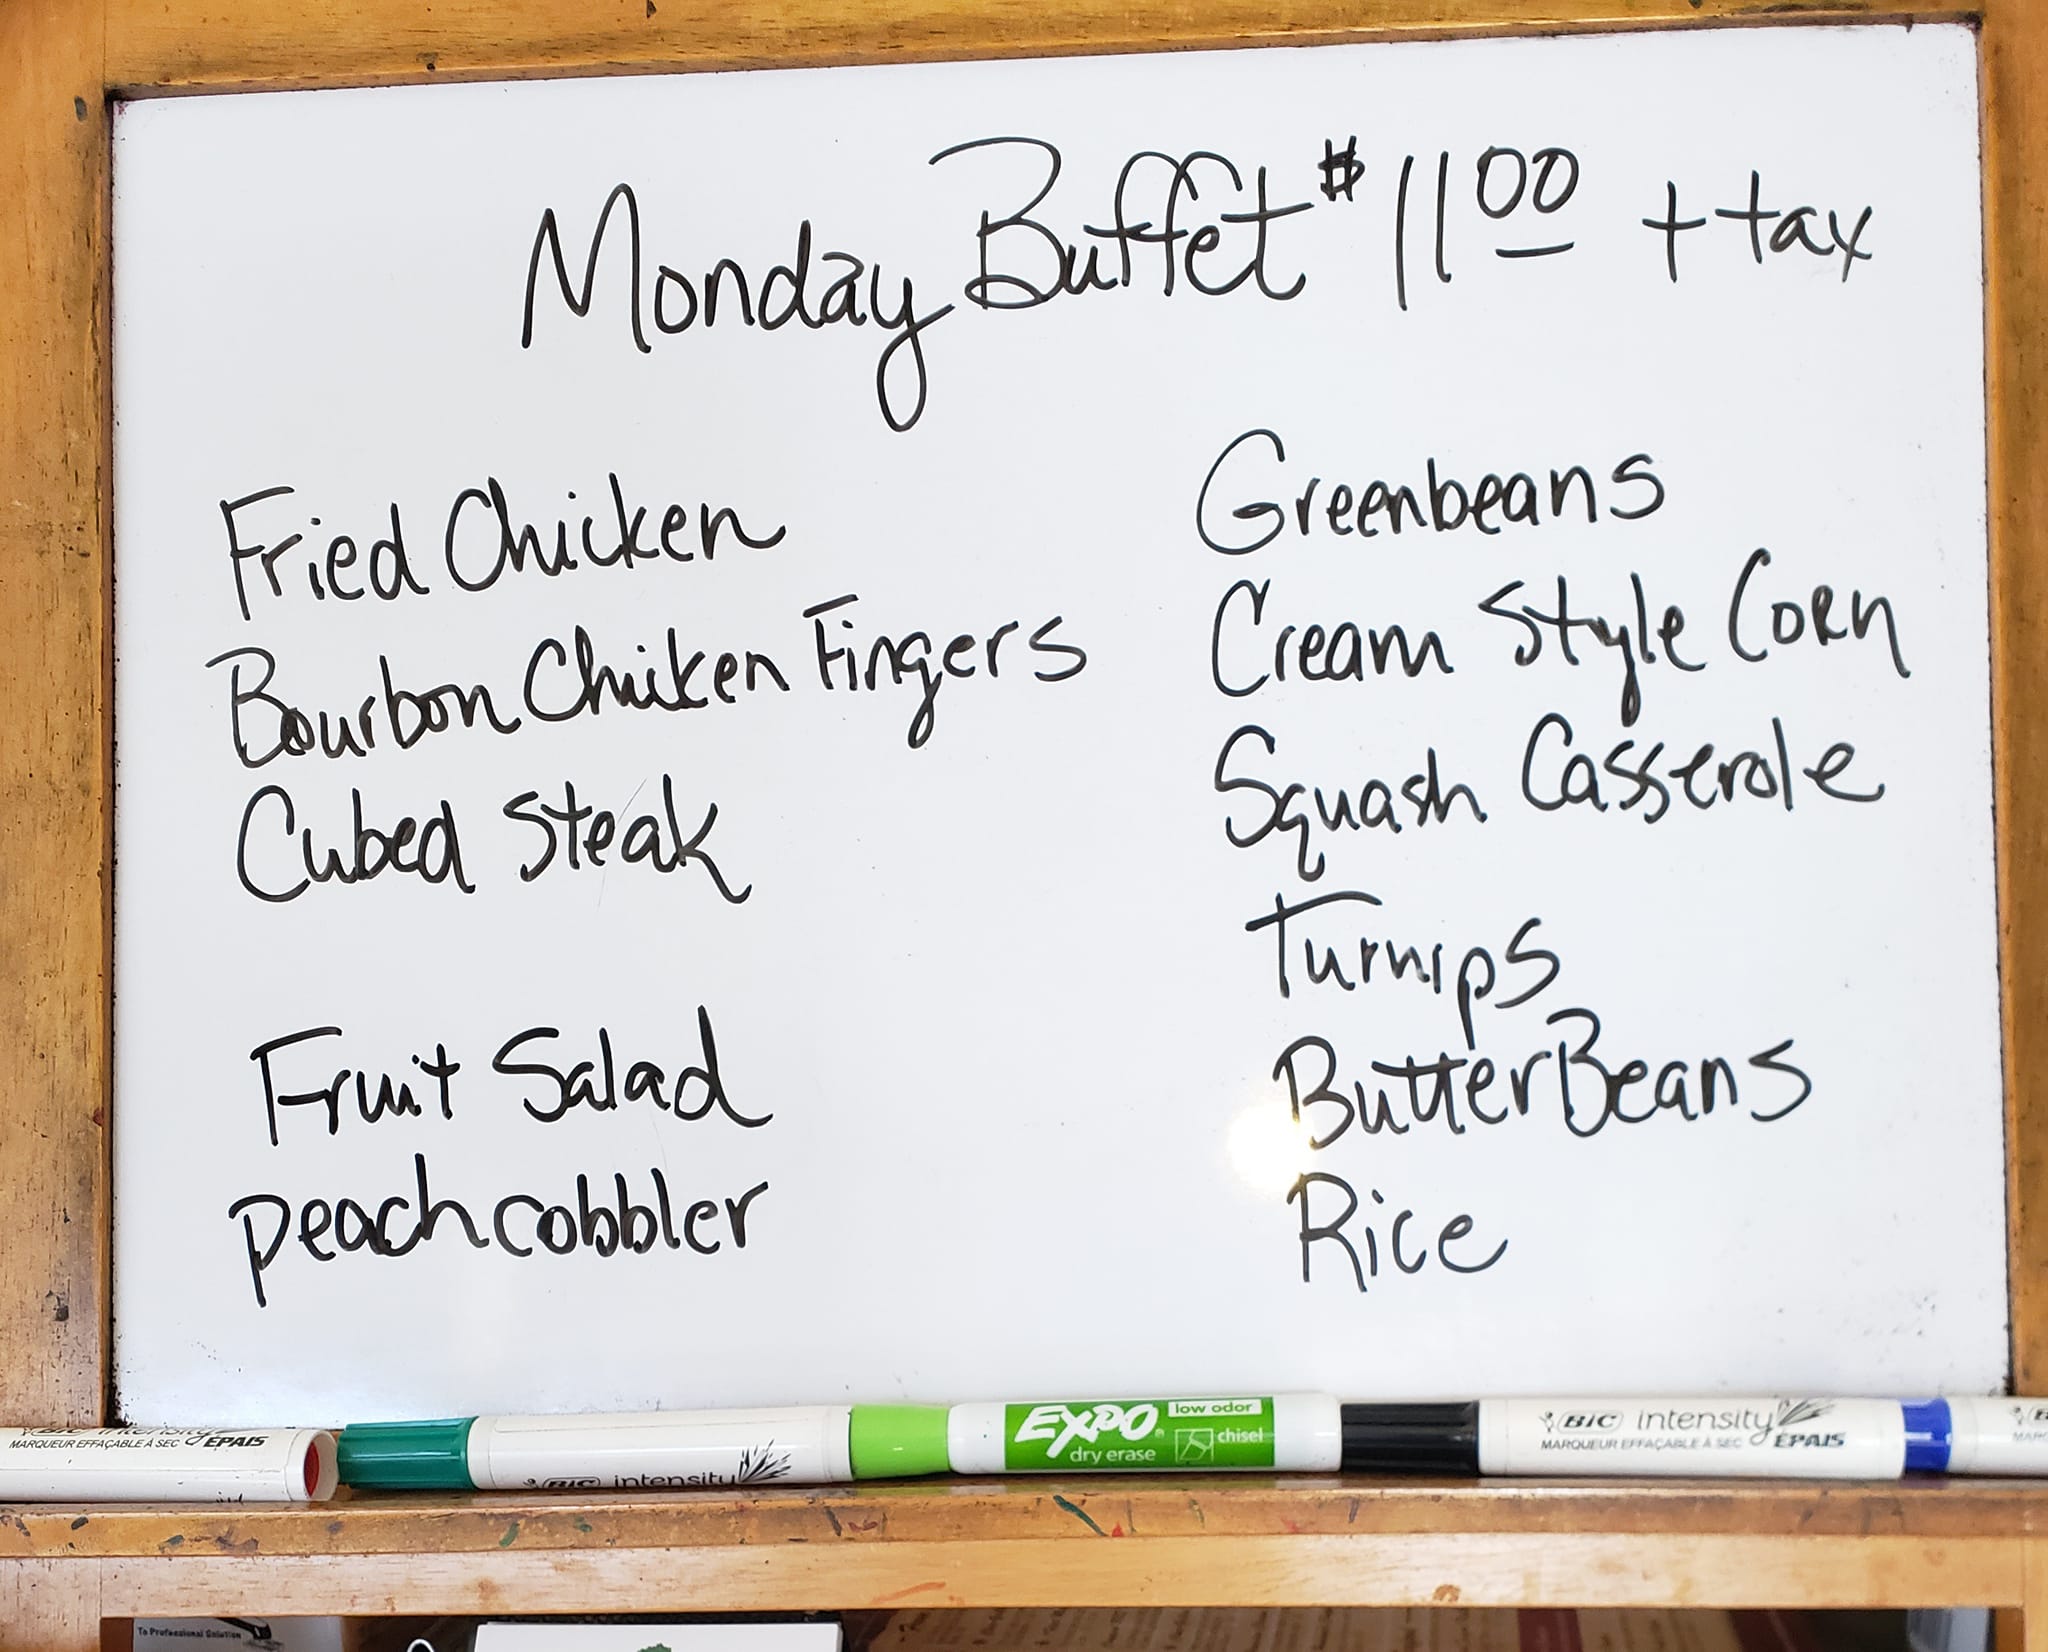 Monday Buffet $11.00 + tax
Fried Chicken
Bourbon Chicken Fingers
Cubed Steak
Fruit Salad
peach cobbler
Greenbeans
Cream Style Corn
Squash Casserole
Turnips
Butter Beans
Rice
BIC intensity
MARQUEUR EFFAÇABLE À SEC ÉPAIS
BIC intensity
EXPO
low odor
dry erase
chisel
BIC intensity
MARQUEUR EFFAÇABLE À SEC ÉPAIS
To Professional Solution